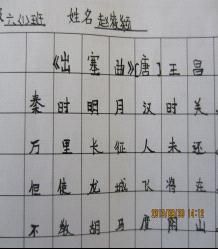 六(1)班 姓名 赵筱颖
《出塞曲》[唐]王昌
秦时明月汉时关
万里长征人未还
但使龙城飞将在
不教胡马度阴山